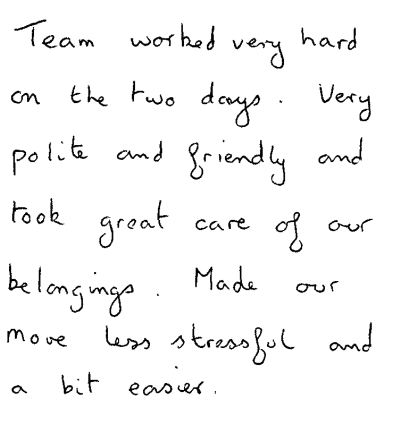 Team worked very hard
on the two days. Very
polite and friendly and
took great care of our
belongings. Made our
move less stressful and
a bit easier.